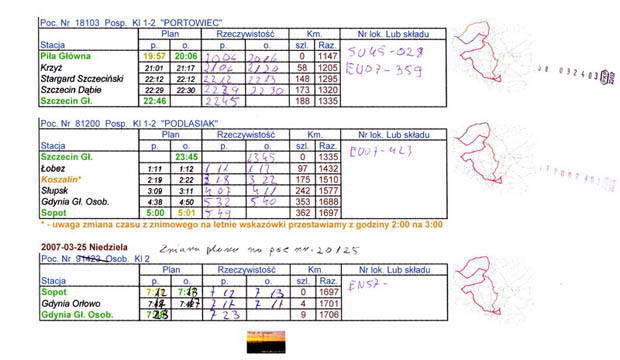 Poc. Nr 18103 Posp. Kl 1-2 "PORTOWIEC"
Plan Rzeczywistość Km. Nr lok. Lub składu
Stacja p. o. p. o. szl. Raz.
Piła Główna 19:57 20:06 2004 2016 0 1147 SU45-028
Krzyż 21:01 21:17 2104 2120 58 1205 EU07-359
Stargard Szczeciński 22:12 22:12 2212 2213 148 1295
Szczecin Dąbie 22:29 22:30 2229 2230 173 1320
Szczecin Gł. 22:46 2245 188 1335
Poc. Nr 81200 Posp. Kl 1-2 "PODLASIAK"
Plan Rzeczywistość Km. Nr lok. Lub składu
Stacja p. o. p. o. szl. Raz.
Szczecin Gł. 23:45 2345 0 1335 EU07-423
Łobez 1:11 1:12 1 12 1 13 97 1432
Koszalin* 2:19 2:22 3 18 3 22 175 1510
Słupsk 3:09 3:11 4 07 4 11 242 1577
Gdynia Gł. Osob. 4:38 4:50 5 32 5 40 353 1688
Sopot 5:00 5:01 5 49 362 1697
* - uwaga zmiana czasu z znimowego na letnie wskazówki przestawiamy z godziny 2:00 na 3:00
2007-03-25 Niedziela Zmiana planu na poc nr. 20125
Poc. Nr 91423 Osob. Kl 2
Plan Rzeczywistość Km. Nr lok. Lub składu
Stacja p. o. p. o. szl. Raz.
Sopot 7:12 7:13 7 12 7 13 0 1697 EN57-
Gdynia Orłowo 7:17 7:17 7 17 7 17 4 1701
Gdynia Gł. Osob. 7:23 7 23 9 1706